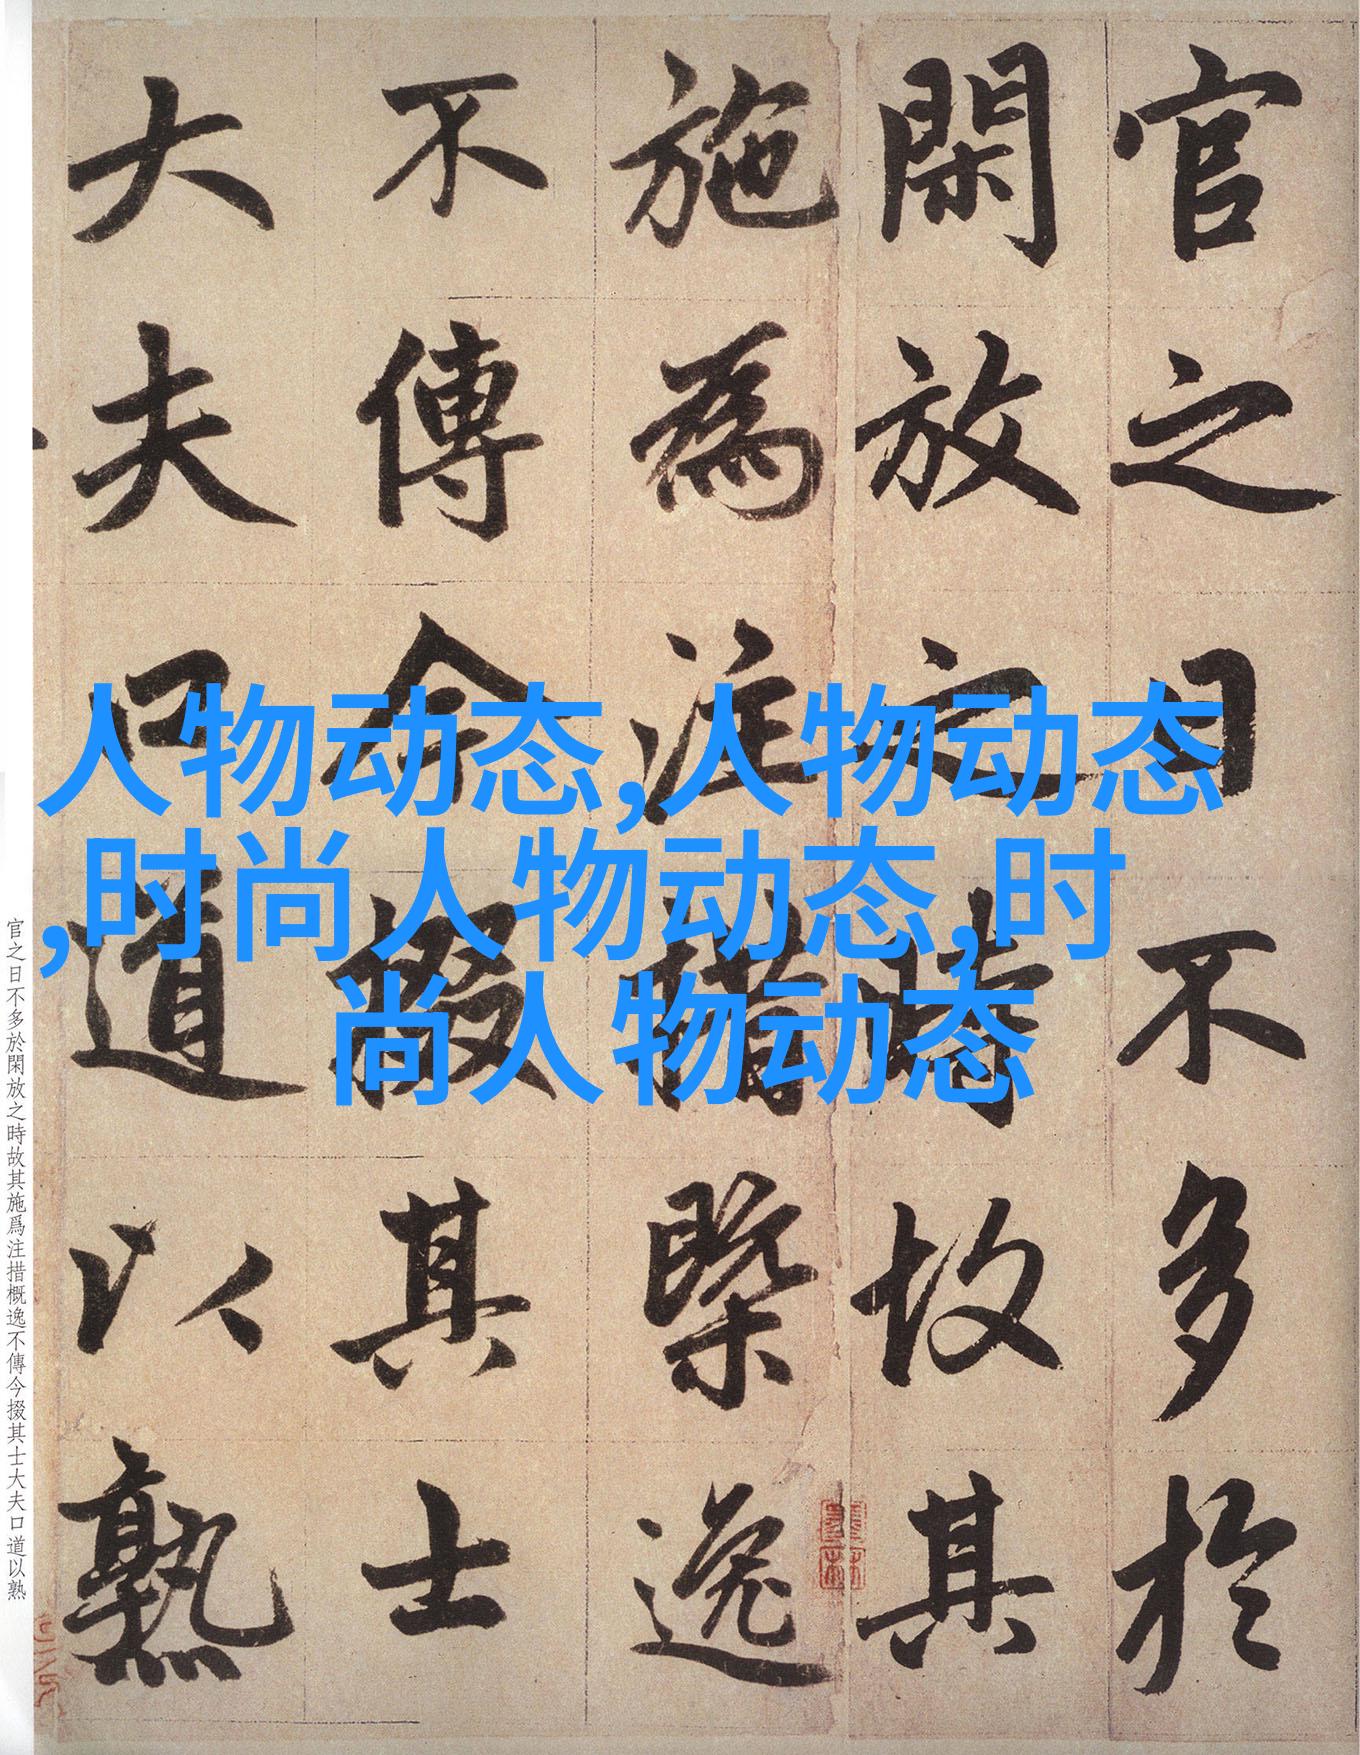 官之日不多於
閑放之時故其
施為注措槩逸
不傳今掇其士
大夫口道以熟
人物动态,人物动态
,时尚人物动态,时
尚人物动态
官之日不多於閑放之時故其施爲注措概逸不傳今掇其士大夫口道以熟